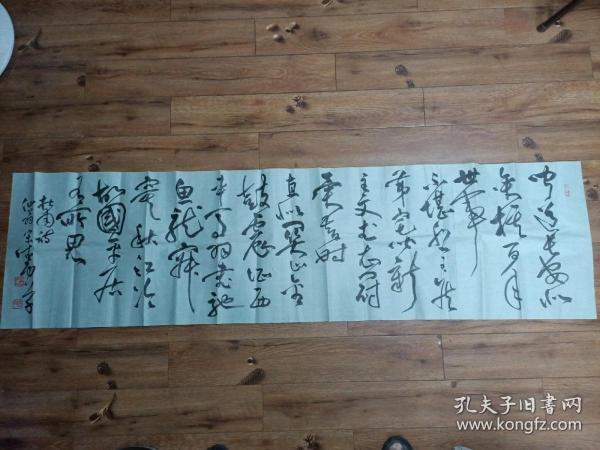 聞道長安似
弈棋百年
世事
不堪悲王侯
第宅皆新
主文武衣冠
異昔時
直北關山金
鼓震征西
車馬羽書馳
魚龍寂
寞秋江冷
故國平居
有所思
杜甫詩
孔夫子旧书网
www.kongfz.com